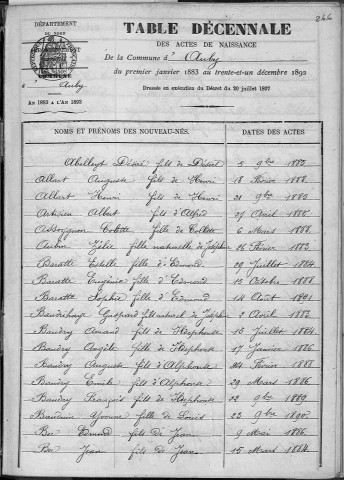 246
DÉPARTEMENT
DU NORD
TABLE DÉCENNALE
DES ACTES DE NAISSANCE
De la Commune d' Auby
du premier janvier 1883 au trente-et-un décembre 1892
Dressée en exécution du Décret du 20 juillet 1807
COMMUNE
d' Auby
AN 1883 A L'AN 1892
NOMS ET PRÉNOMS DES NOUVEAU-NÉS. DATES DES ACTES
Désiré fils de Désiré 5 9bre 1883
Allart Auguste fils de Henri 18 Février 1888
Allart Henri fils de Henri 21 9bre 1885
Albert fils d'Alfred 27 Avril 1886
Colette fille de Collette 6 Mars 1888
Aubin Zélie fille naturelle de 26 Février 1883
Baratte Estelle fille d'Edmond 29 Juillet 1884
Baratte Eugénie fille d'Edmond 15 Octobre 1888
Baratte Sophie fille d'Edmond 14 Août 1891
Gaspard fils naturel de 2 Avril 1883
Baudry Amand fils de Ildephonse 15 Juillet 1884
Baudry Angèle fille de Ildephonse 17 Janvier 1886
Baudry Auguste fils d'Alphonse 24 Février 1888
Baudry Emile fils d'Alphonse 29 Mars 1886
Baudry François fils de Ildephonse 22 9bre 1889
Baudrin Yvonne fille de Louis 23 9bre 1890
Bee Edmond fils de Jean 9 Mai 1886
Bee Jean fils de Jean 15 Mars 1884